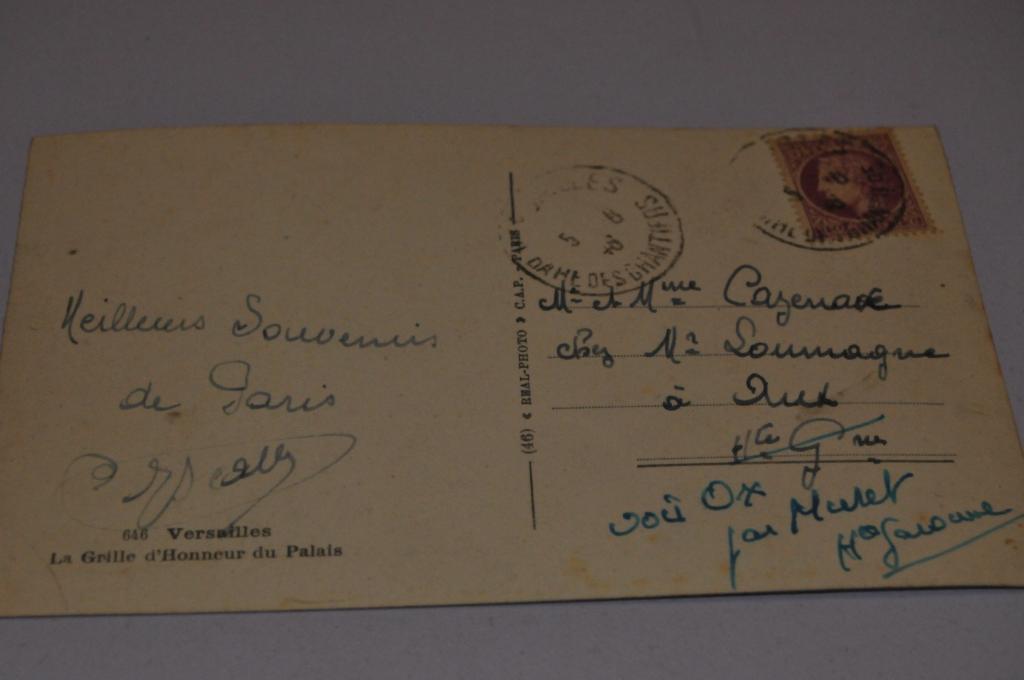 Meilleurs Souvenirs
de Paris
646 Versailles
La Grille d'Honneur du Palais
(46) « REAL-PHOTO » C.A.P. - PARIS
DAME DES CHANTIERS
Mr et Mme Cazenave
chez Mr Loumagne
à
Hte Gne
voir OX
par Muret
Hte Garonne